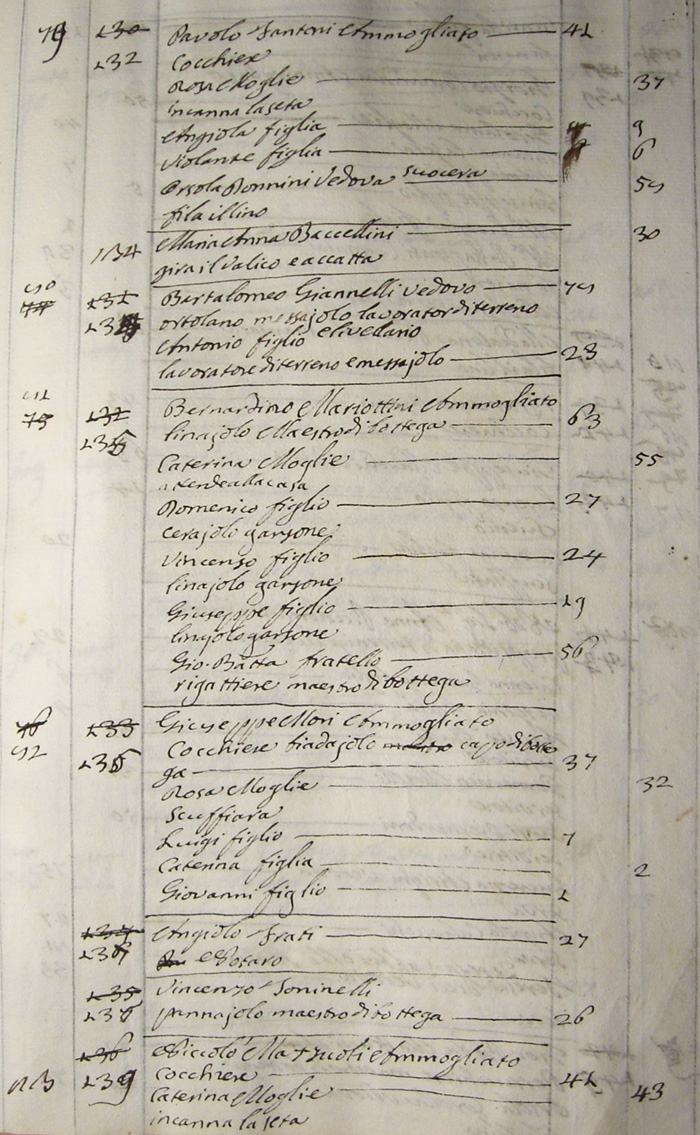 79 130 Pavolo Santoni Ammogliato 41
132 Cocchiere
Rosa Moglie 37
incanna la seta
Angiola figlia 9
Violante figlia 6
Orsola Bonnini Vedova suocera
fila il lino
Maria Anna Baccellini 30
134 gira il Valico e accatta
Bartalomeo Giannelli vedovo
ortolano messajolo lavorator di terreno
Antonio figlio e livellario
lavoratore di terreno e messajolo 23
Bernardino Mariottini Ammogliato
linajolo Maestro di bottega 63
Caterina Moglie 55
attende alla casa
Domenico figlio 27
cerajolo garzone
Vincenzo figlio 24
linajolo garzone
Giuseppe figlio 19
linajolo garzone
Gio. Batta fratello 56
rigattiere maestro di bottega
133 Giuseppe Mori Ammogliato
Cocchiere biadajolo maestro capo di botte
ga 37
Rosa Moglie 32
Scuffiara
Luigi figlio 7
Caterina figlia 2
Giovanni figlio 1
Angiolo Frati 27
Notaro
Vincenzo Soninelli
pannajolo maestro di bottega 26
136 Niccolò Mazzuoli Ammogliato
139 Cocchiere 41
Caterina Moglie 43
incanna la seta